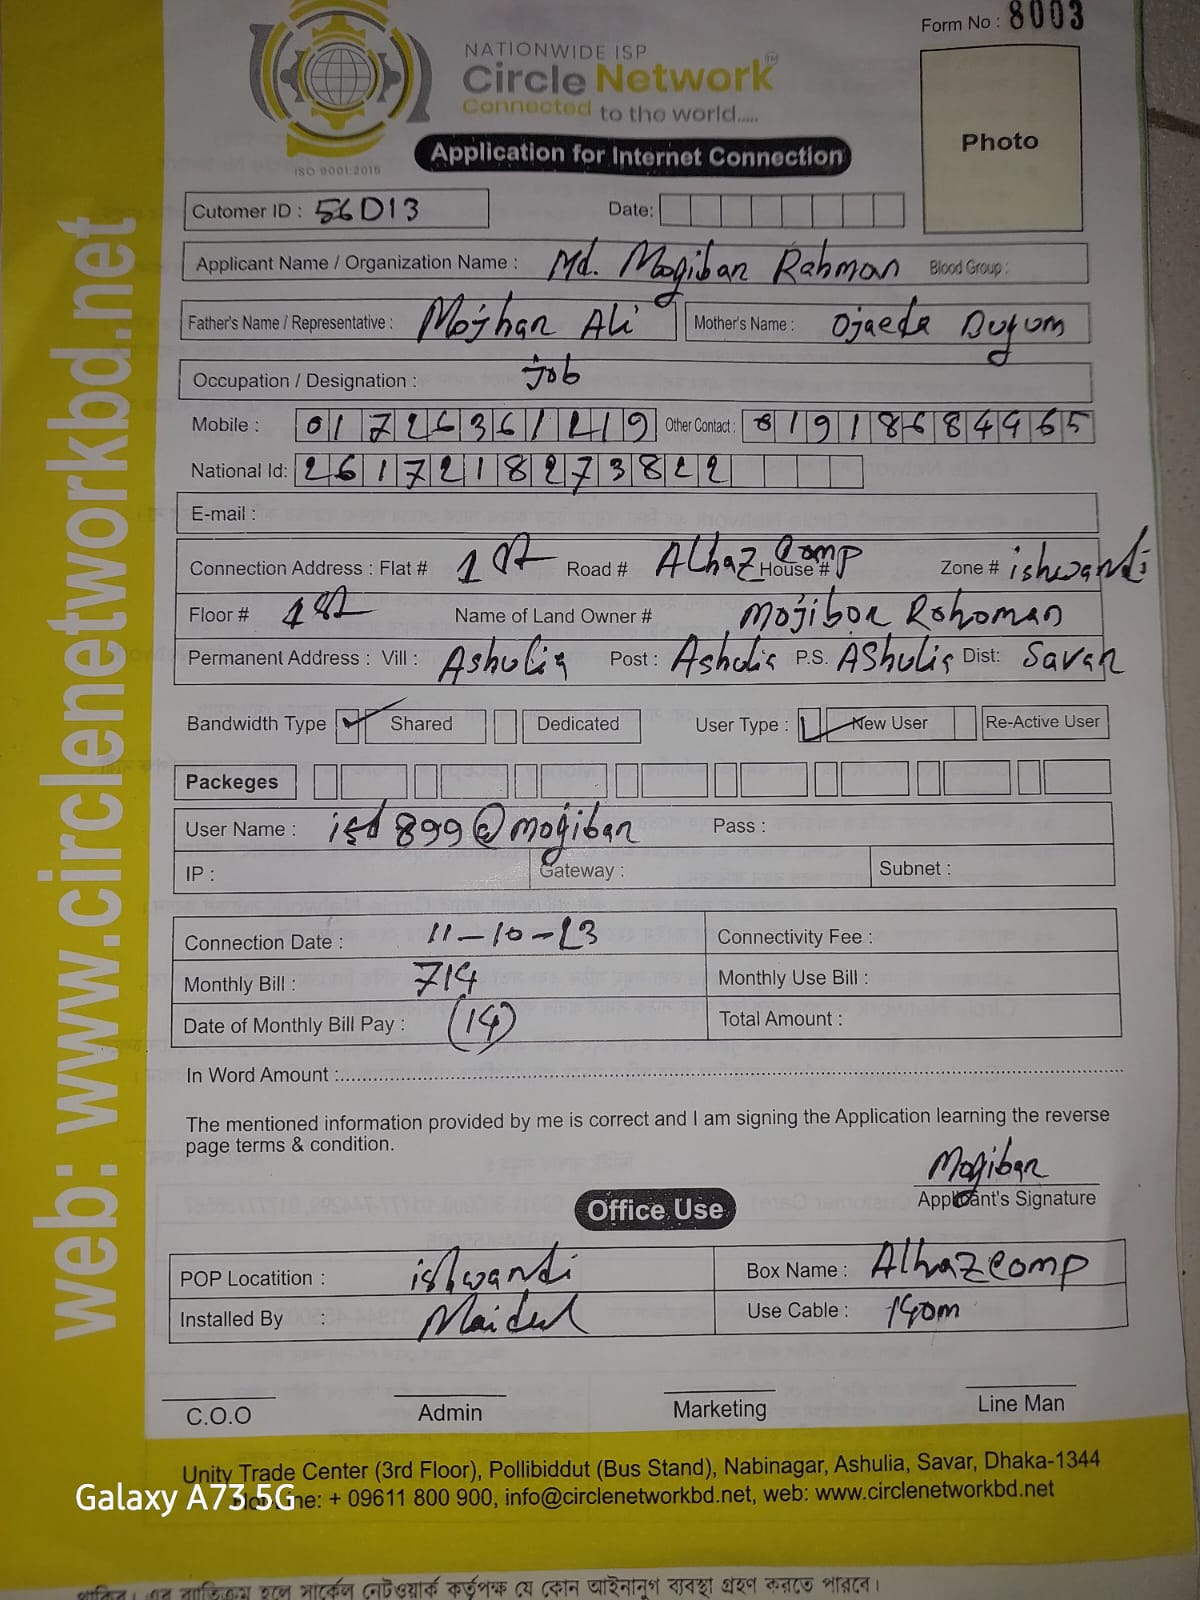 Form No : 8003
NATIONWIDE ISP
Circle Network TM
Connected to the world.....
ISO 9001:2015
Application for Internet Connection
Photo
Cutomer ID : 56D13 Date:
Applicant Name / Organization Name : Md. Mogiban Rahman Blood Group :
Father's Name / Representative : Mojhan Ali Mother's Name : Ojaeda
Occupation / Designation : Job
Mobile : 01726361219 Other Contact : 01918684965
National Id: 2617218273822
E-mail :
Connection Address : Flat # 1st Road # Alhaz Comp House # Zone # ishwandi
Floor # 1st Name of Land Owner # Mojibor Rohoman
Permanent Address : Vill : Ashulia Post : Ashulia P.S. AShulia Dist: Savar
Bandwidth Type Shared Dedicated User Type : New User Re-Active User
Packeges
User Name : isd899@mogiban Pass :
IP : Gateway : Subnet :
Connection Date : 11-10-23 Connectivity Fee :
Monthly Bill : 714 Monthly Use Bill :
Date of Monthly Bill Pay : (14) Total Amount :
In Word Amount :
The mentioned information provided by me is correct and I am signing the Application learning the reverse
page terms & condition.
Mogiban
Applicant's Signature
Office Use
POP Locatition : ishwandi Box Name : Alhaz comp
Installed By : Maidul Use Cable : 140m
C.O.O Admin Marketing Line Man
Unity Trade Center (3rd Floor), Pollibiddut (Bus Stand), Nabinagar, Ashulia, Savar, Dhaka-1344
Hot Line: + 09611 800 900, info@circlenetworkbd.net, web: www.circlenetworkbd.net
web: www.circlenetworkbd.net
Galaxy A73 5G
থাকিব। এর ব্যতিক্রম হলে সার্কেল নেটওয়ার্ক কর্তৃপক্ষ যে কোন আইনানুগ ব্যবস্থা গ্রহণ করতে পারবে।